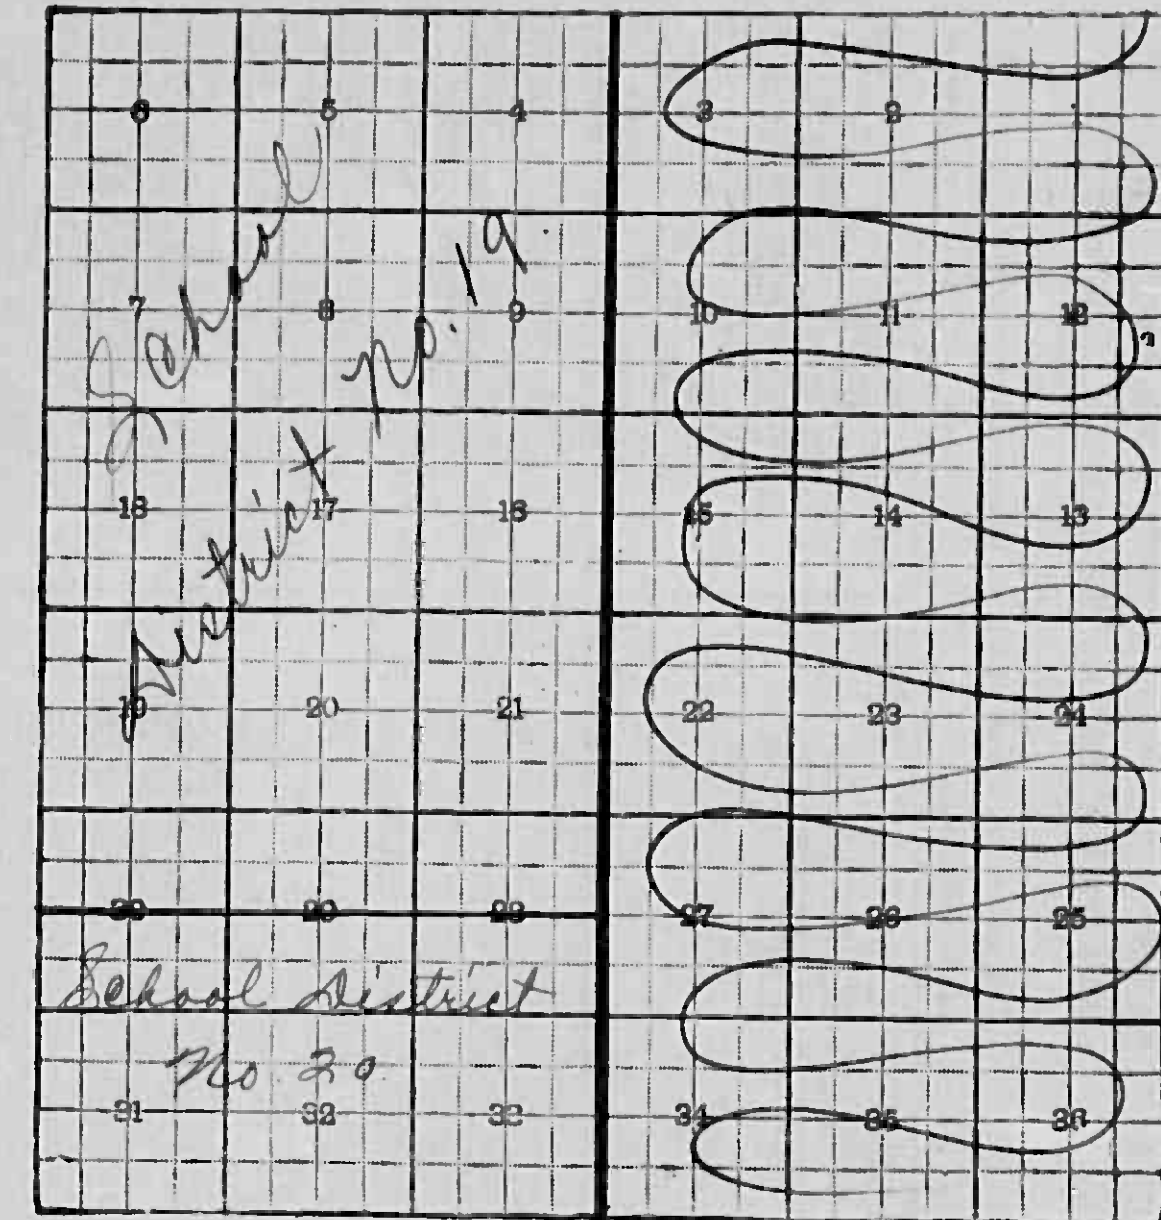 6 5 4 3 2
School
District No. 19.
7 8 9 10 11 12
18 17 16 15 14 13
19 20 21 22 23 24
29 28 27 26 25
School District
No. 20
31 32 33 34 35 36